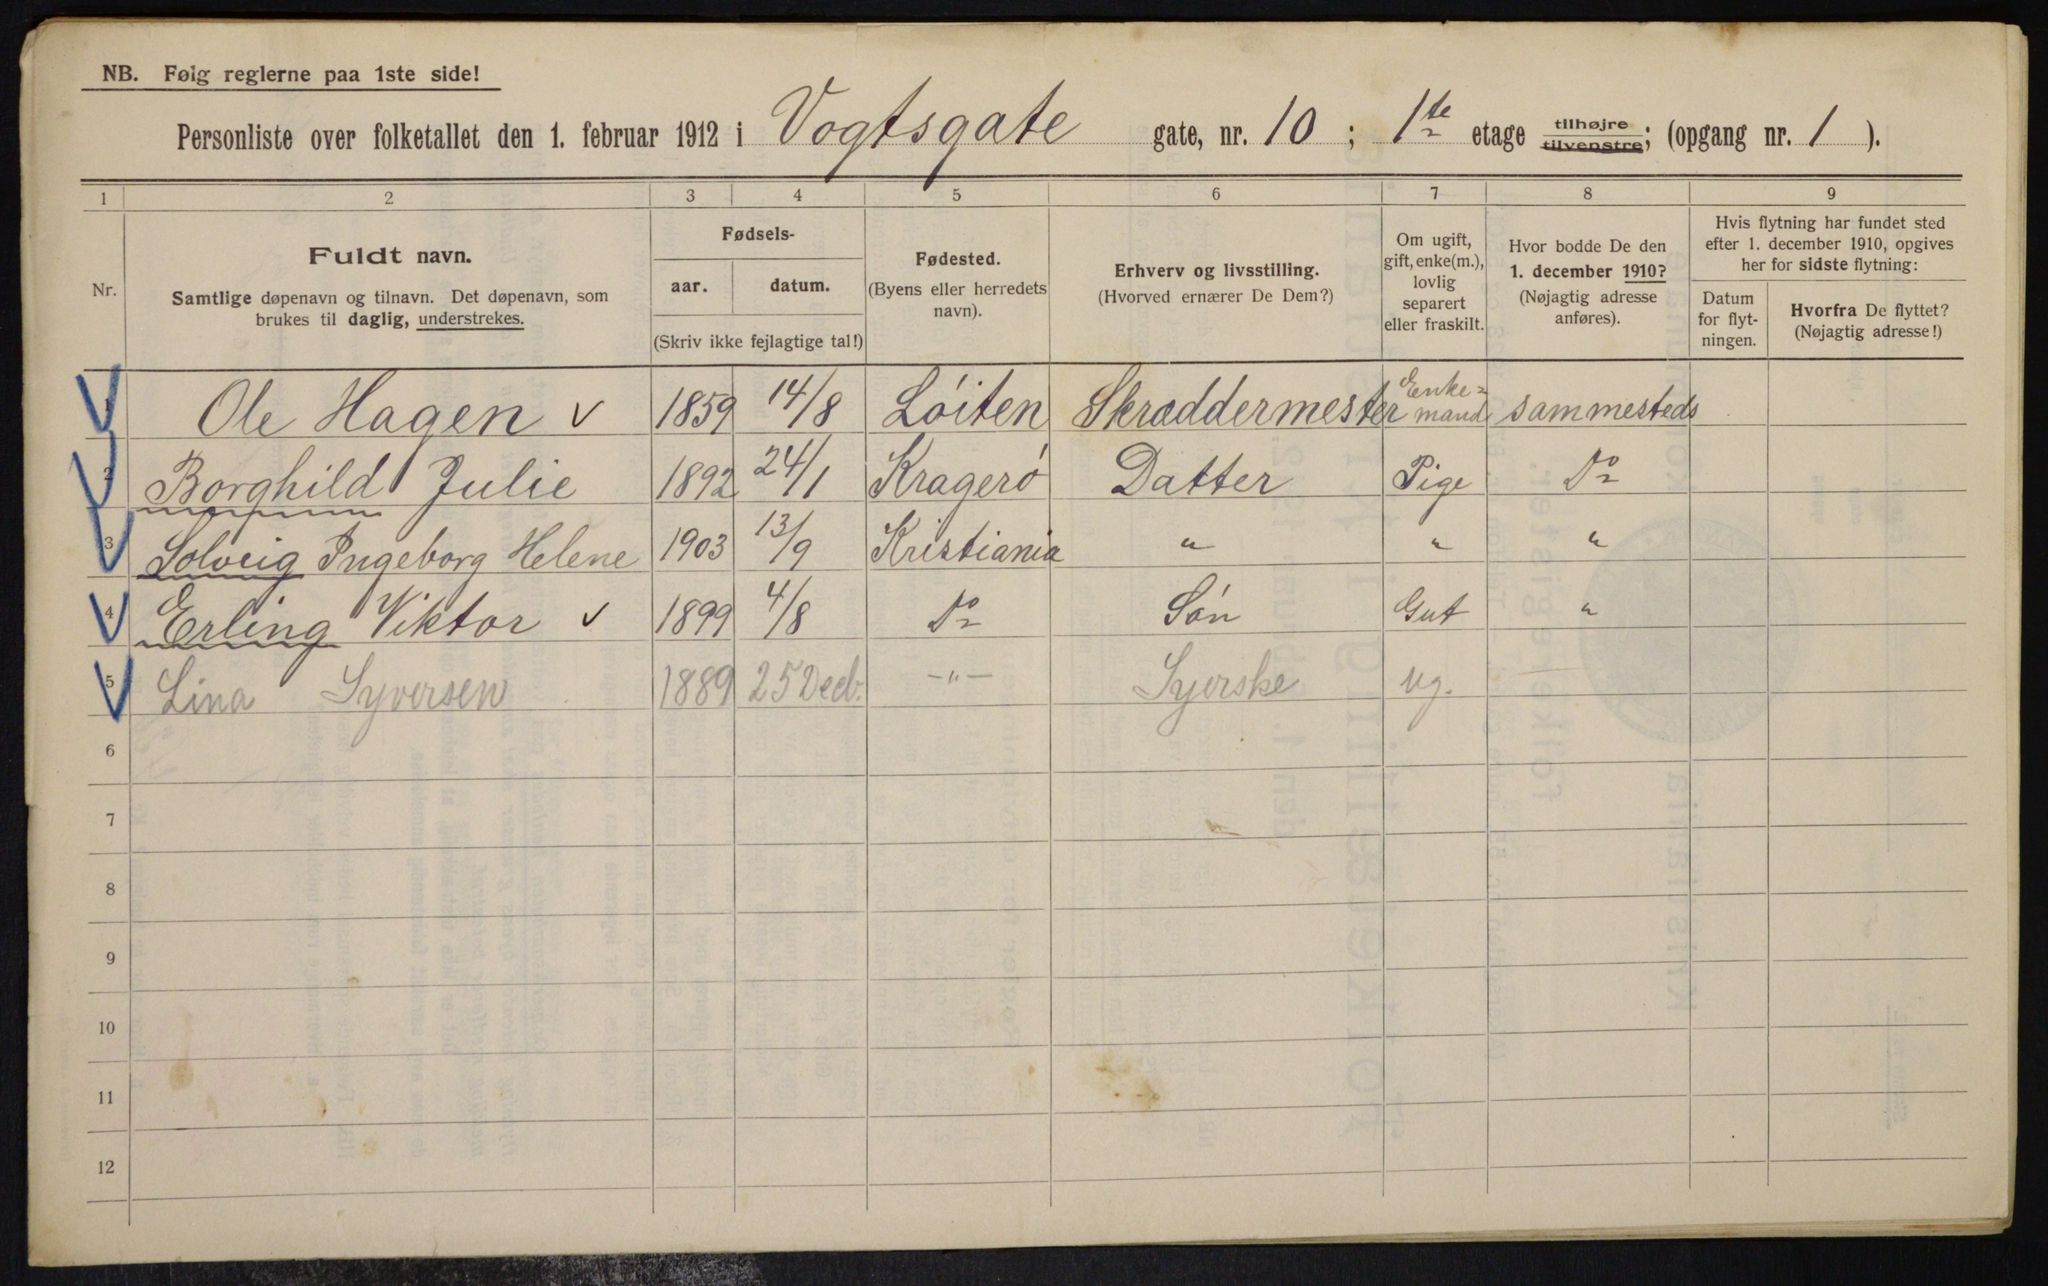 NB. Følg reglerne paa 1ste side!
Personliste over folketallet den 1. februar 1912 i Vogtsgate gate, nr. 10 ; 1ste etage tilhøjre tilvenstre; (opgang nr. 1 ).
1 2 3 4 5 6 7 8 9
Nr.
Fuldt navn.
Samtlige døpenavn og tilnavn. Det døpenavn, som
brukes til daglig, understrekes.
Fødsels-
aar. datum.
(Skriv ikke fejlagtige tal!)
Fødested.
(Byens eller herredets
navn).
Erhverv og livsstilling.
(Hvorved ernærer De Dem?)
Om ugift,
gift, enke(m.),
lovlig
separert
eller fraskilt.
Hvor bodde De den
1. december 1910?
(Nøjagtig adresse
anføres).
Hvis flytning har fundet sted
efter 1. december 1910, opgives
her for sidste flytning:
Datum
for flyt-
ningen.
Hvorfra De flyttet?
(Nøjagtig adresse!)
1 Ole Hagen v 1859 14/8 Løiten Skræddermester Enke=mand sammesteds
2 Borghild Julie 1892 24/1 Kragerø Datter Pige Do
3 Solveig Ingeborg Helene 1903 13/9 Kristiania " " "
4 Erling Viktor v 1899 4/8 Do Søn Gut "
5 Lina Syversen 1889 25 Decb. —"— Syerske ug.
6
7
8
9
10
11
12